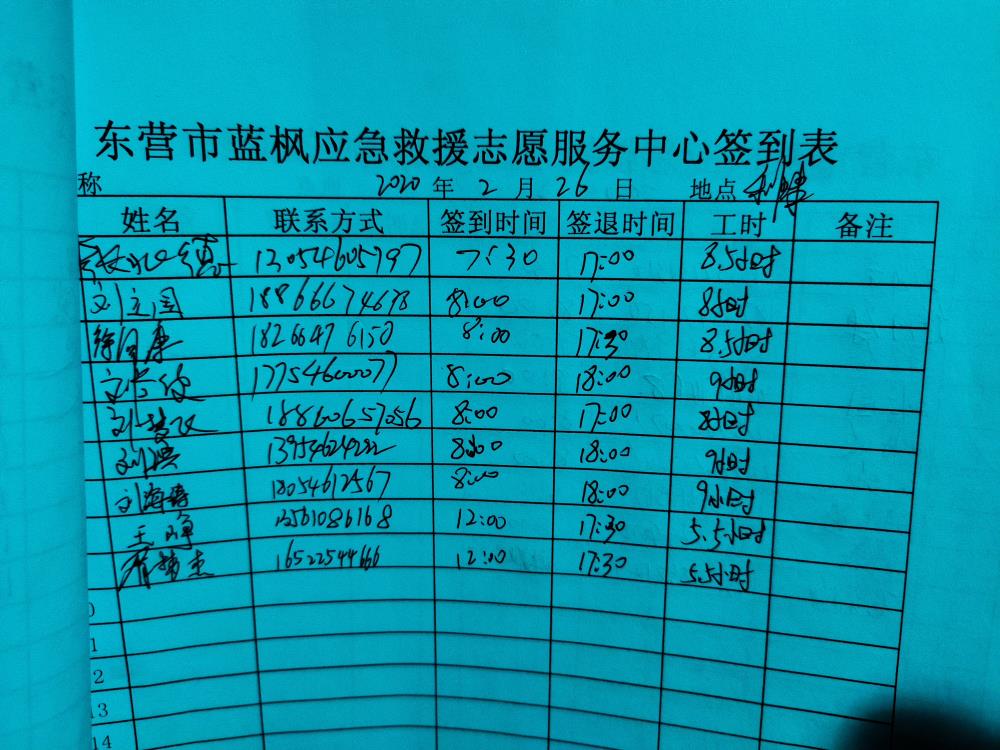 东营市蓝枫应急救援志愿服务中心签到表
称 2020 年 2 月 26 日 地点
姓名 联系方式 签到时间 签退时间 工时 备注
13054605797 7:30 17:00 8.5小时
刘立国 18866674678 8:00 17:00 8小时
徐国康 18266476150 8:00 17:30 8.5小时
17754600077 8:00 18:00 9小时
18860657056 8:00 17:00 8小时
13954624222 8:00 18:00 9小时
刘海涛 18054612567 8:00 18:00 9小时
王峰 13561086168 12:00 17:30 5.5小时
16522544666 12:00 17:30 5.5小时
0
1
2
13
14